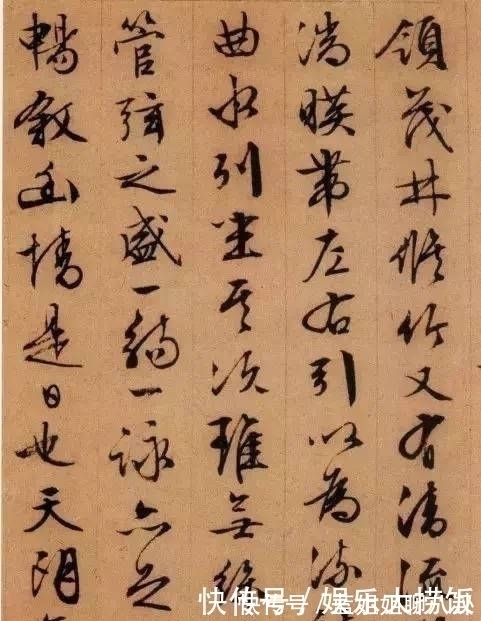 領茂林脩竹又有清流
湍暎帶左右引以為流
曲水列坐其次雖無絲
管弦之盛一觴一詠亦足
暢敘幽情是日也天朗
快传号 / 娱乐大